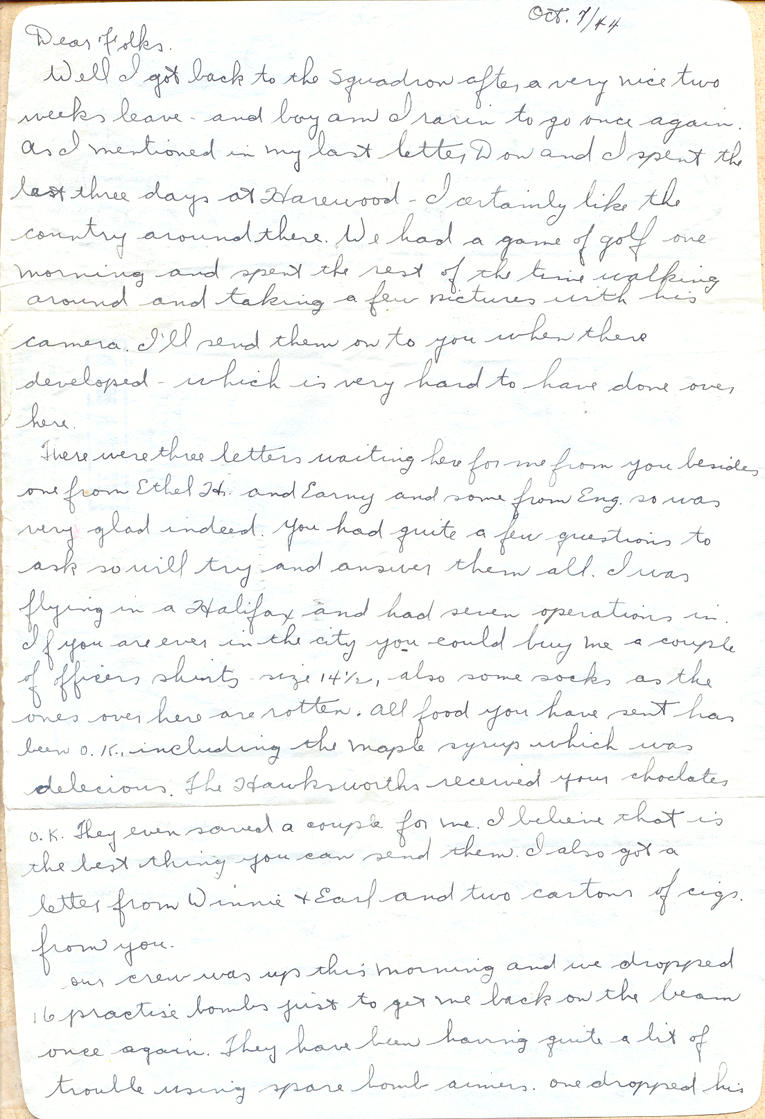 Oct. 7/44
Dear Folks.
Well I got back to the Squadron after a very nice two
weeks leave - and boy am I rarin to go once again.
As I mentioned in my last letter, Don and I spent the
last three days at Harewood - I certainly like the
country around there. We had a game of golf one
morning and spent the rest of the time walking
around and taking a few pictures with his
camera. I'll send them on to you when there
developed - which is very hard to have done over
here.
There were three letters waiting here for me from you besides
one from Ethel H. and Earny and some from Eng. so was
very glad indeed. You had quite a few questions to
ask so will try and answer them all. I was
flying in a Halifax and had seven operations in.
If you are ever in the city you could buy me a couple
of officers shirts size 14½, also some socks as the
ones over here are rotten. All food you have sent has
been O.K. including the maple syrup which was
delecious. The Hawksworths received your choclates
O.K. They even saved a couple for me. I believe that is
the best thing you can send them. I also got a
letter from Winnie + Earl and two cartons of cigs.
from you.
Our crew was up this morning and we dropped
16 practise bombs just to get me back on the beam
once again. They have been having quite a bit of
trouble using spare bomb aimers. One dropped his